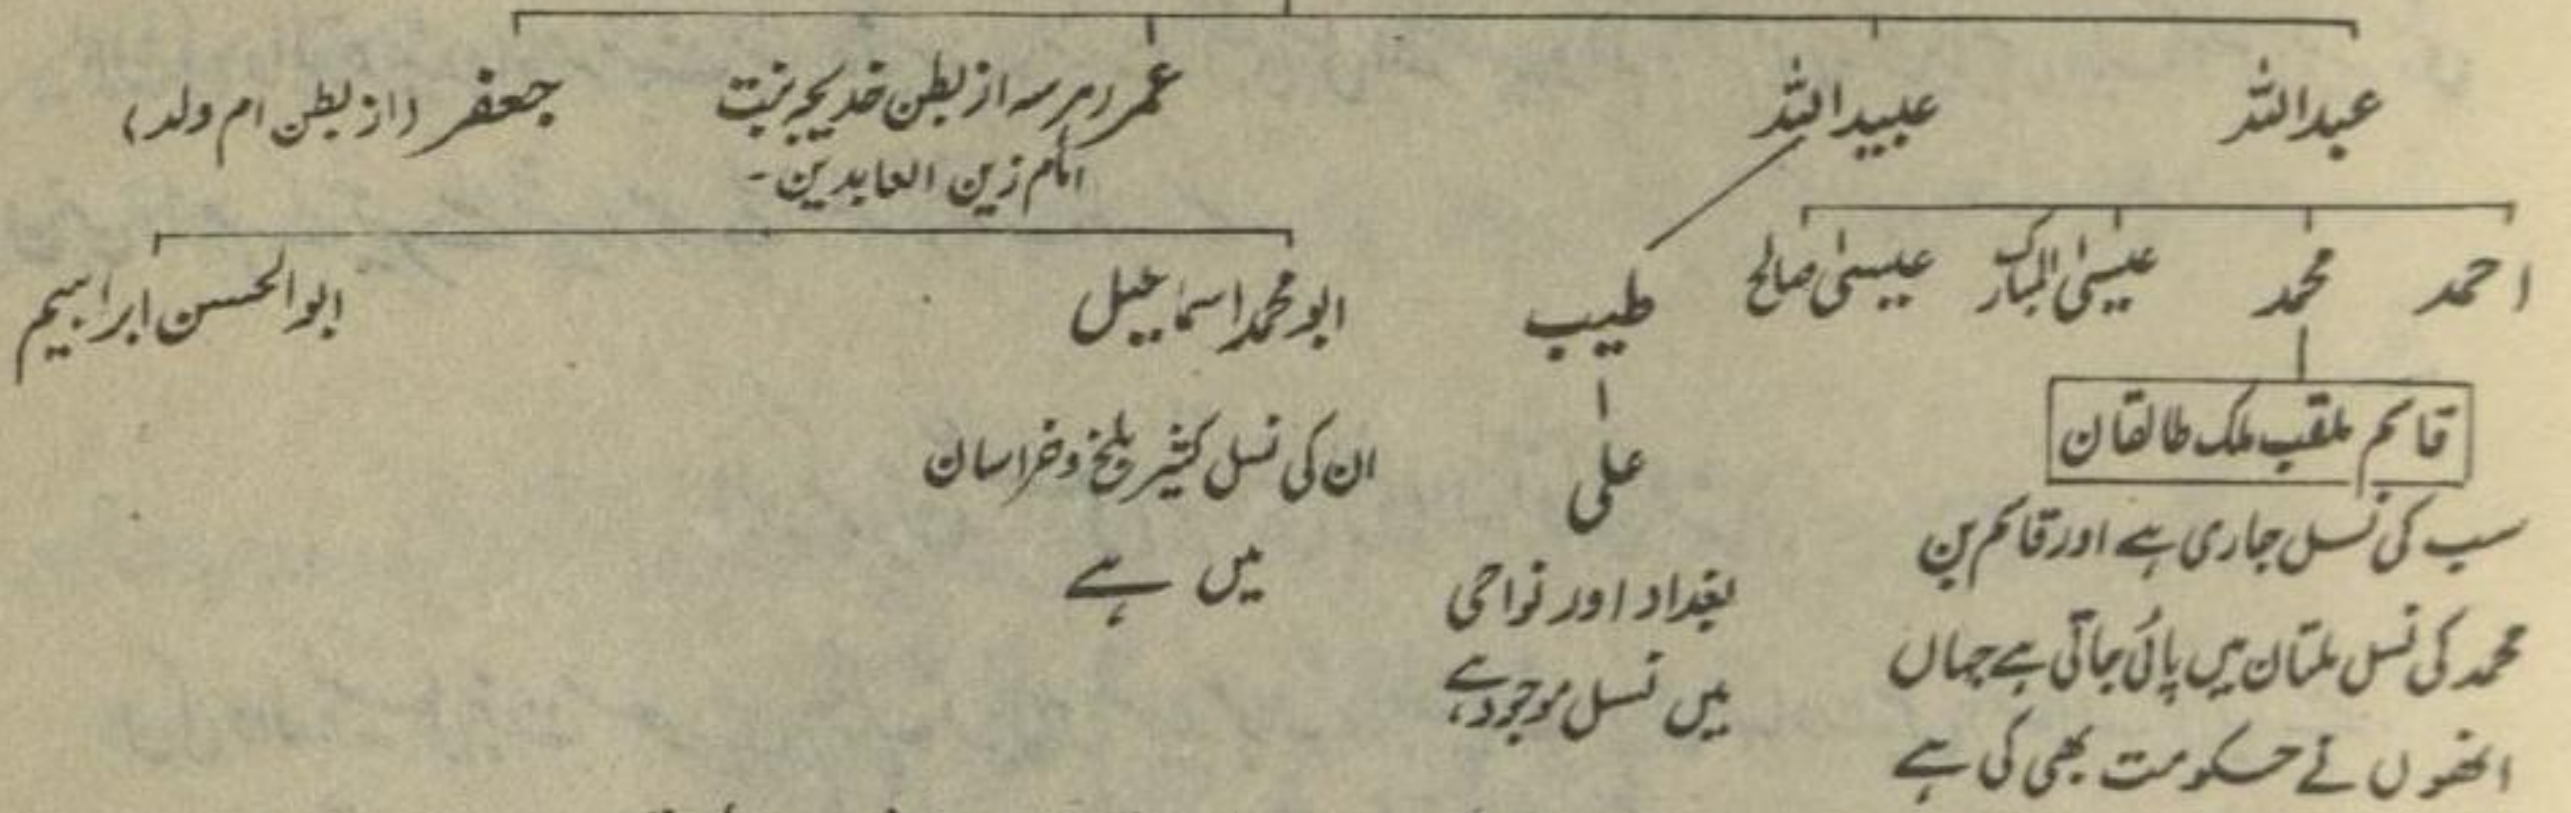 عبداللہ
عبیداللہ
عمر (ہر سہ از بطن خدیجہ بنت
امام زین العابدین۔
جعفر (از بطن ام ولد)
احمد
محمد
عیسیٰ المبارک
عیسیٰ صالح
طیب
ابو محمد اسماعیل
ابوالحسن ابراہیم
قاسم ملقب ملک طالقان
سب کی نسل جاری ہے اور قاسم بن
محمد کی نسل ملتان میں پائی جاتی ہے جہاں
انھوں نے حکومت بھی کی ہے
علی
بغداد اور نواحی
میں نسل موجود ہے
ان کی نسل کثیر بلخ و خراسان
میں ہے